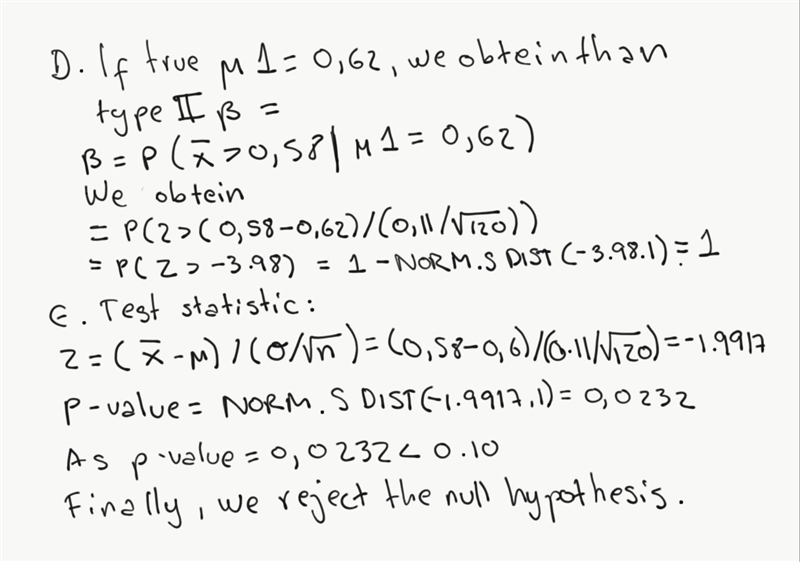 D. If true μ1 = 0,62, we obtein than
type II β =
β = P(x̄ > 0,58 | μ1 = 0,62)
We obtein
= P(z > (0,58-0,62)/(0,11/√120))
= P(Z > -3.98) = 1 - NORM.S DIST(-3.98.1) = 1
E. Test statistic:
z = (x̄ - μ) / (σ/√n) = (0,58-0,6)/(0.11/√120) = -1.9917
P-value = NORM.S DIST(-1.9917,1) = 0,0232
As p-value = 0,0232 < 0.10
Finally, we reject the null hypothesis.